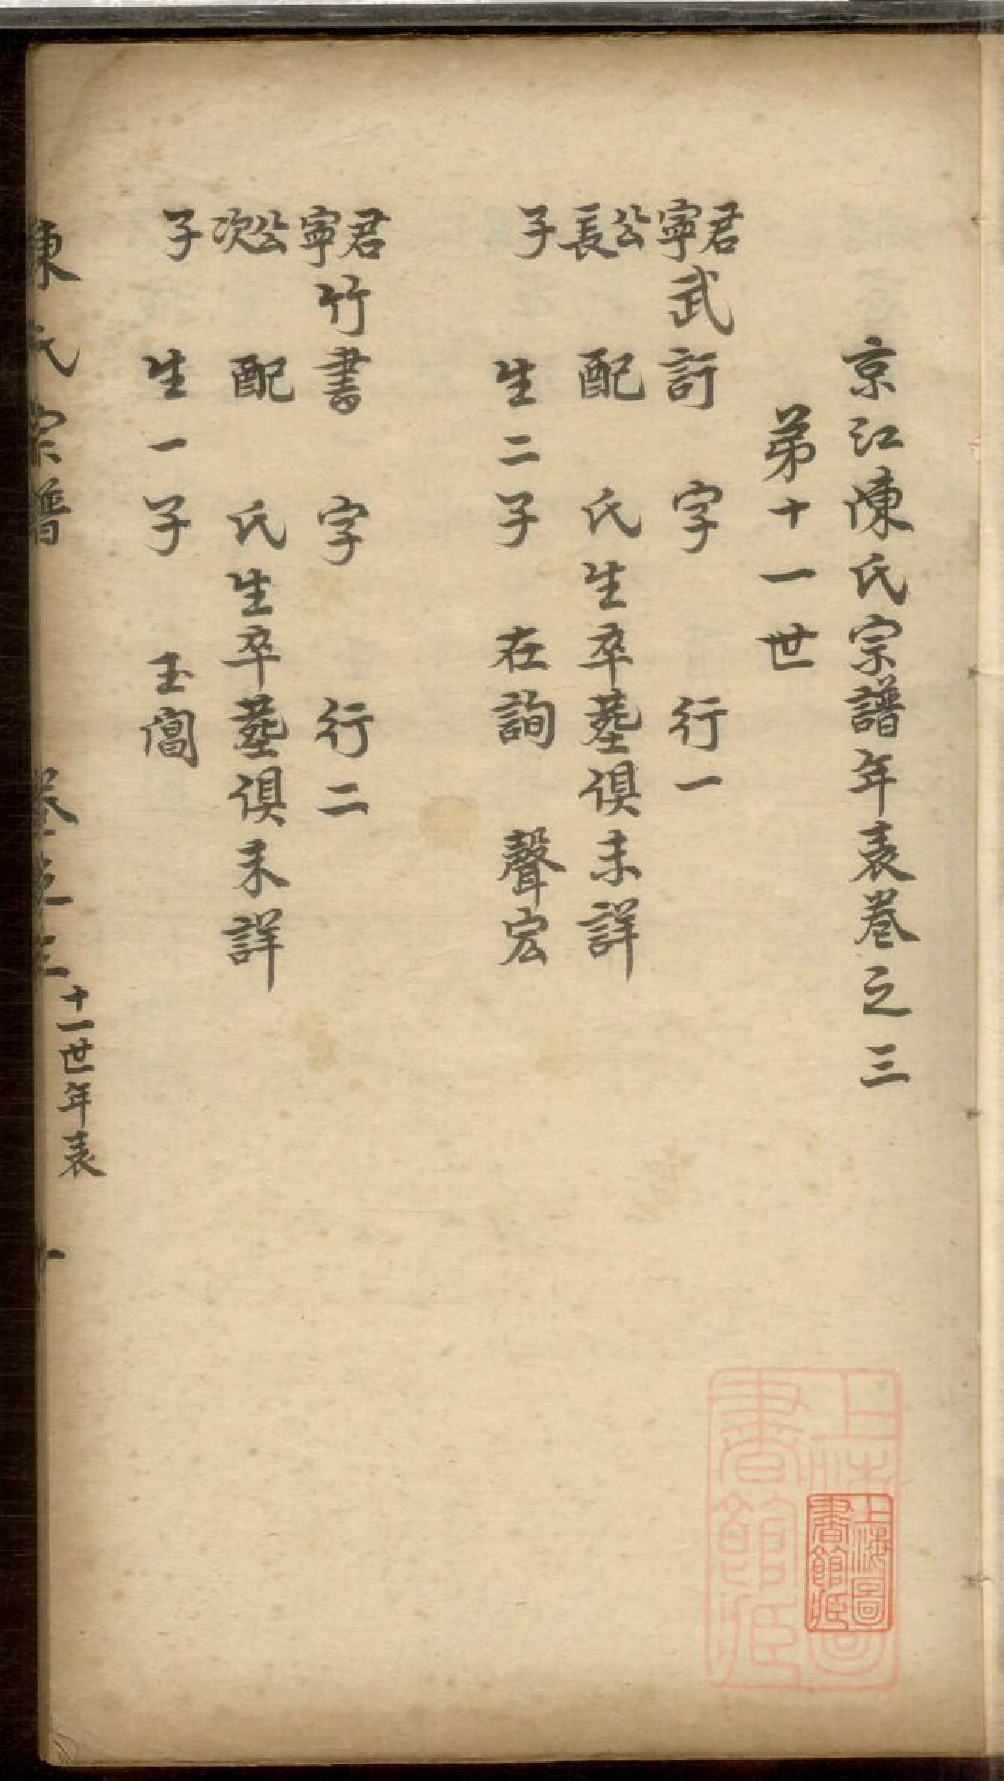 京江陳氏宗譜年表卷之三
第十一世
君寧公長子
武訂 字 行一
配 氏生卒墓俱未詳
生二子 在詢 聲宏
君寧公次子
竹書 字 行二
配 氏生卒墓俱未詳
生一子 玉
陳氏宗譜 卷之三 十一世年表 一
上海圖書館藏
上海圖書館藏